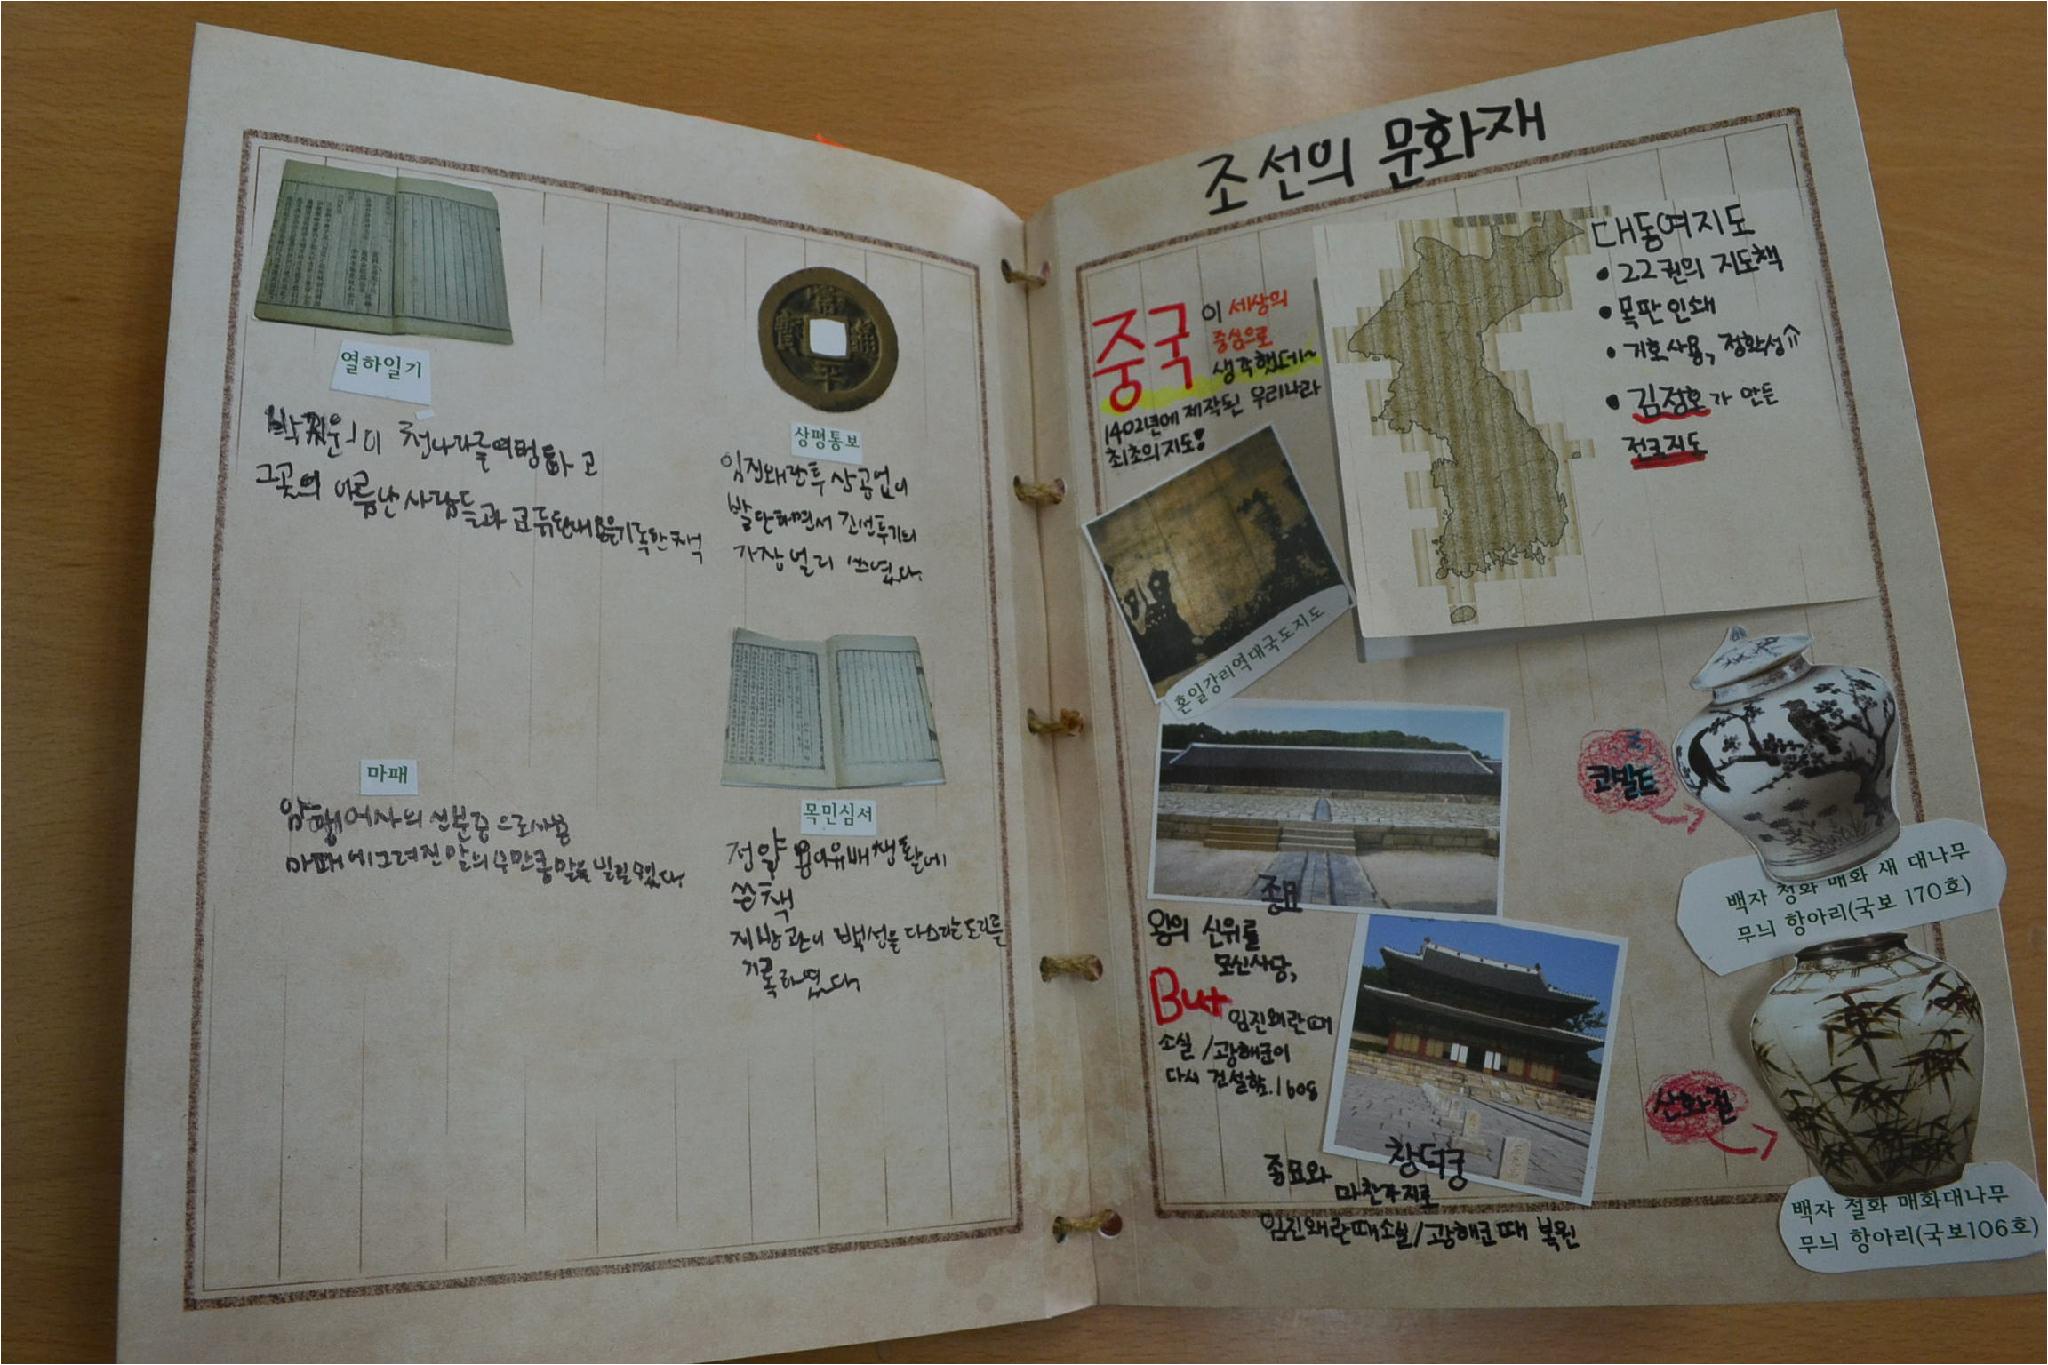 열하일기
박지원이 청나라를여행하고
그곳의 이름난사람들과 교류한내용을기록한책
상평통보
임진왜란후 상공업이
발단하면서 조선후기의
가장 널리 쓰였다.
마패
암행어사의 신분증으로사용
마패에그려진 말의수만큼말을 빌릴수있다
목민심서
정약용이유배생활에
쓴책
지방관이 백성을 다스리는도리를
기록하였다
조선의 문화재
중국이 세상의
중심으로
생각했데~
1402년에 제작된 우리나라
최초의지도!
혼일강리역대국도지도
대동여지도
• 22권의 지도책
• 목판인쇄
• 기호사용, 정확성⇑
• 김정호가 만든
전국지도
종묘
왕의 신위를
모신사당,
But 임진왜란때
소실 / 광해군이
다시 건설함. 1608
창덕궁
종묘와
마찬가지로
임진왜란때소실/광해군때 복원
코발트
백자 청화 매화 새 대나무
무늬 항아리(국보 170호)
산화철
백자 철화 매화대나무
무늬 항아리(국보106호)